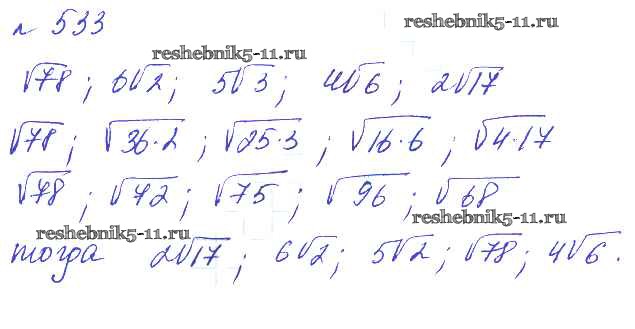 № 533
reshebnik5-11.ru
reshebnik5-11.ru
√78; 6√2; 5√3; 4√6; 2√17
√78; √36·2; √25·3; √16·6; √4·17
√78; √72; √75; √96; √68
reshebnik5-11.ru
reshebnik5-11.ru
тогда 2√17; 6√2; 5√2; √78; 4√6.